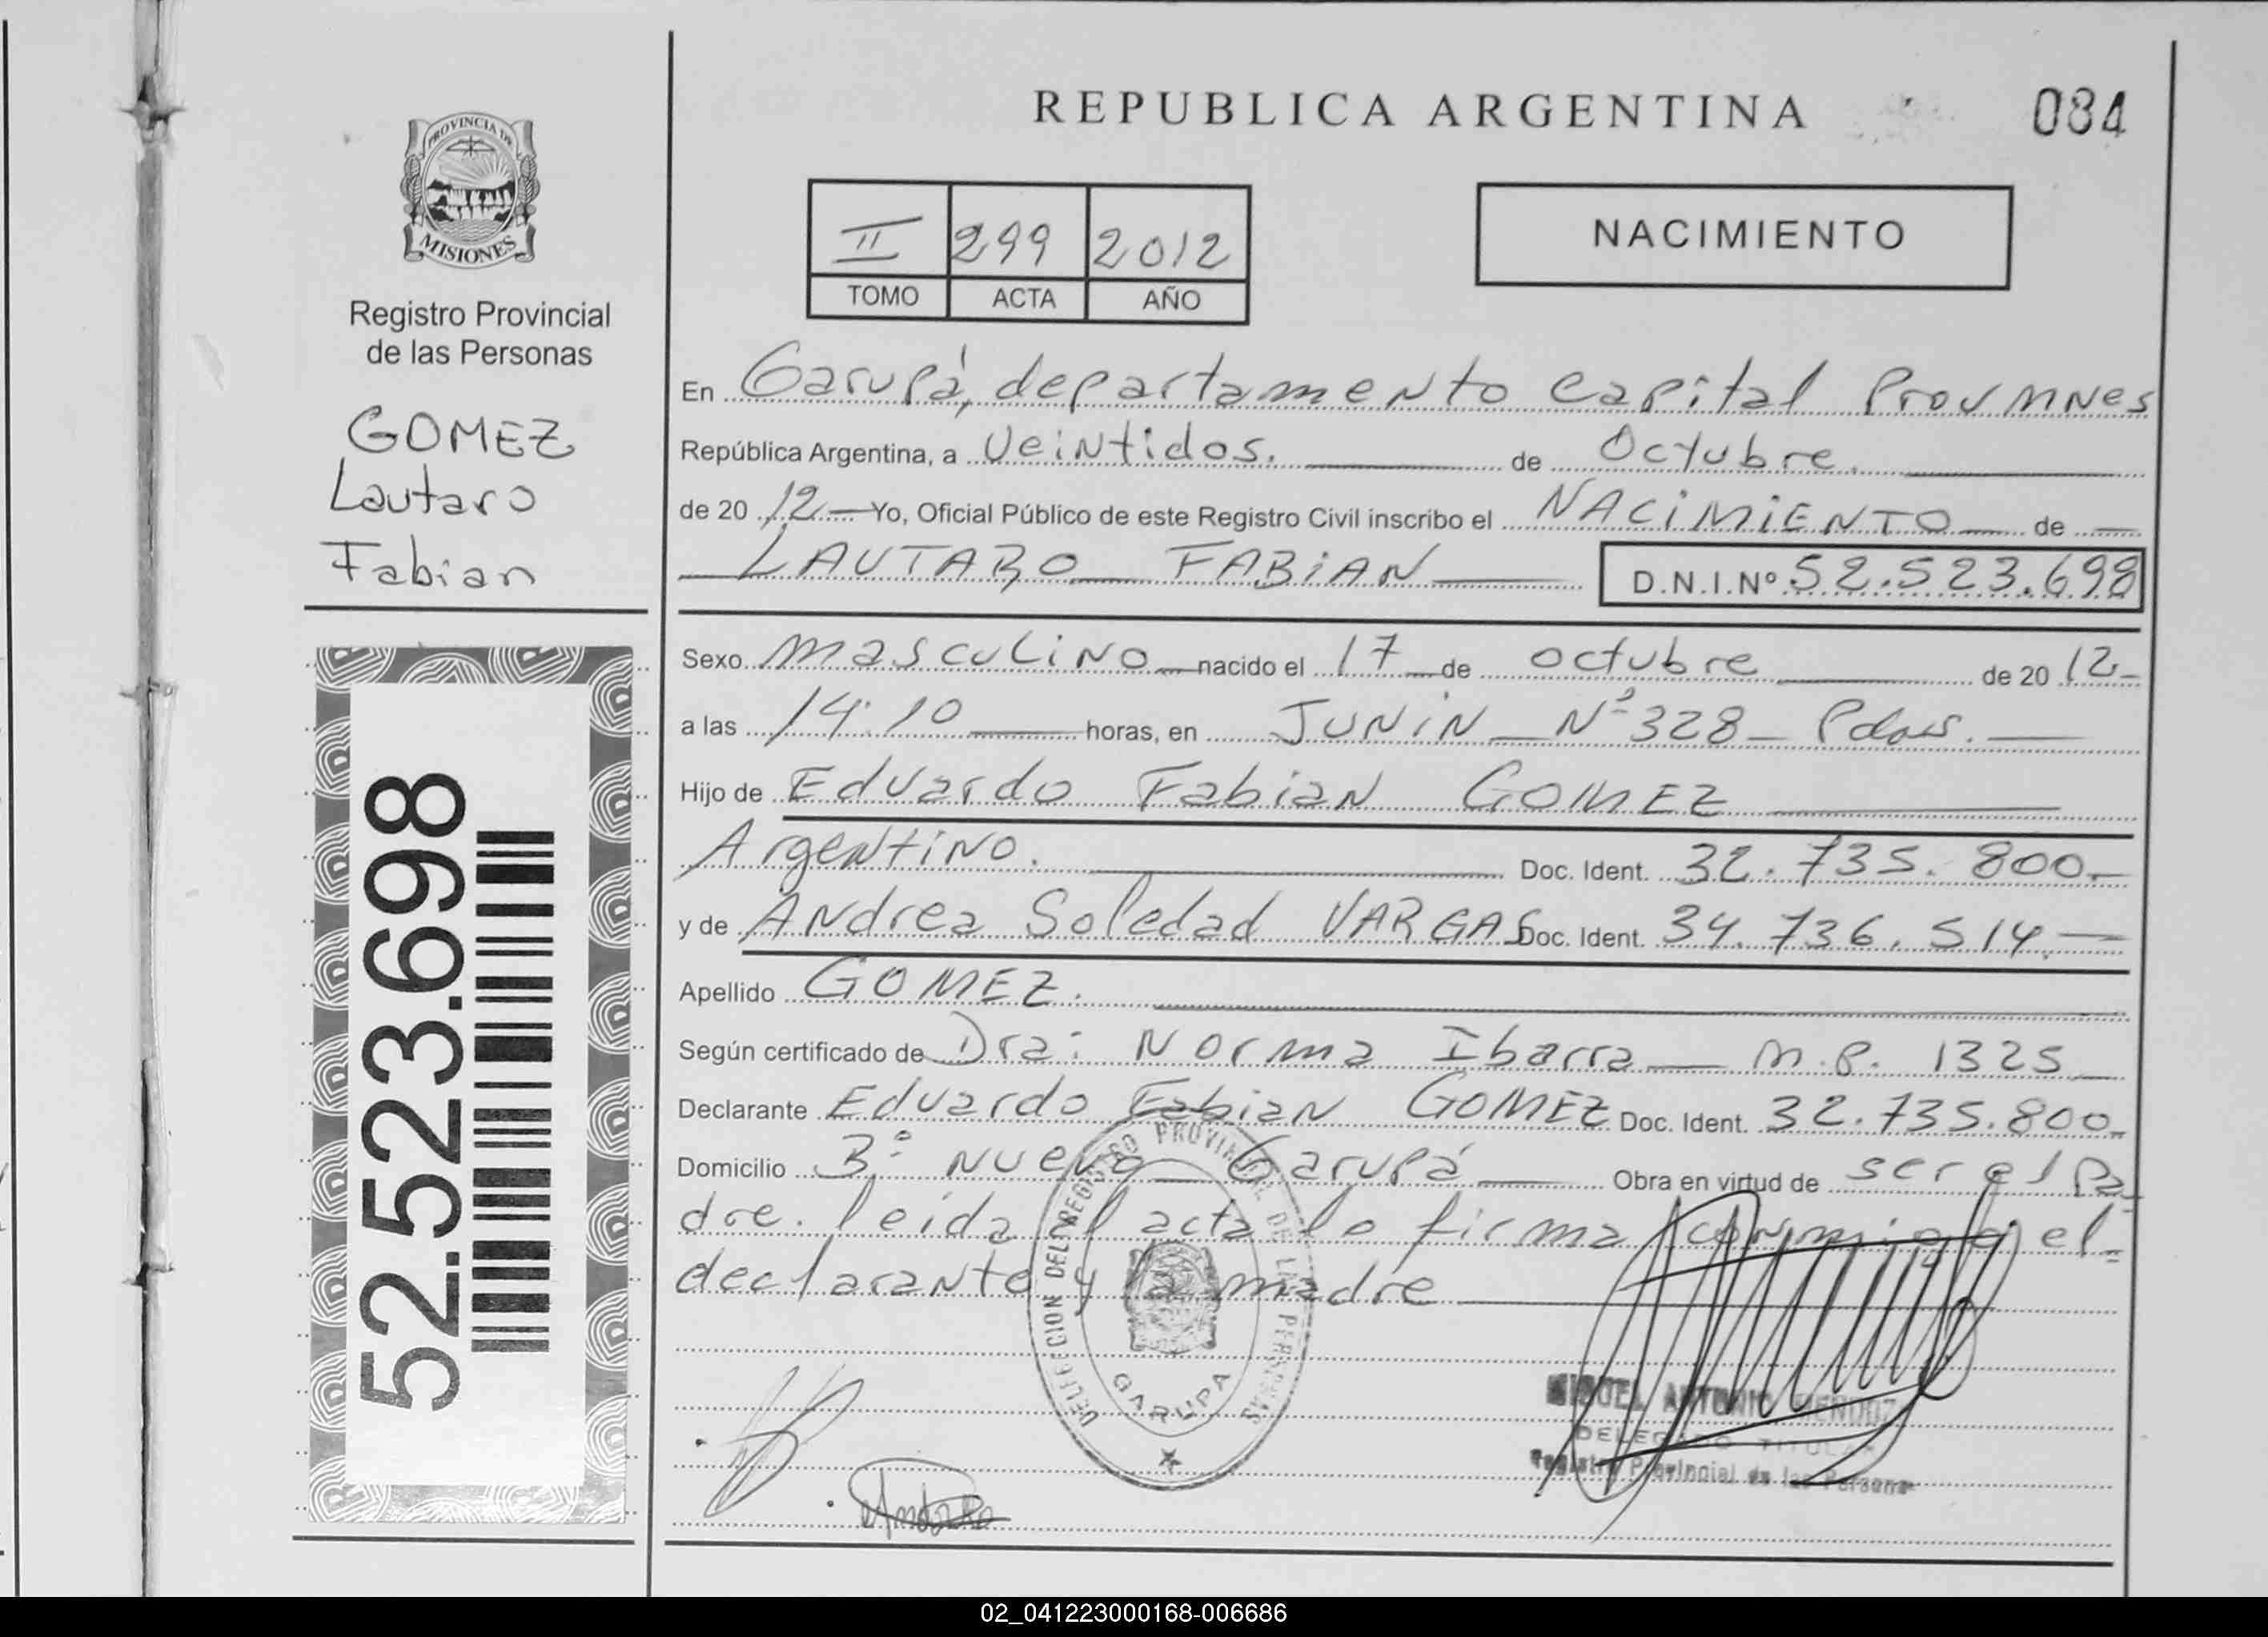 PROVINCIA DE
MISIONES
Registro Provincial
de las Personas
GOMEZ
Lautaro
Fabian
52.523.698
REPUBLICA ARGENTINA
084
II 299 2012
TOMO ACTA AÑO
NACIMIENTO
En Garupá, departamento Capital Prov Mnes
República Argentina, a Veintidos. de Octubre.
de 2012 Yo, Oficial Público de este Registro Civil inscribo el NACIMIENTO de
LAUTARO FABIAN D.N.I.Nº 52.523.698
Sexo masculino nacido el 17 de octubre de 2012
a las 14:10 horas, en JUNIN Nº 328 - Pdas.
Hijo de Eduardo Fabian GOMEZ
Argentino. Doc. Ident. 32.735.800
y de Andrea Soledad VARGAS Doc. Ident. 34.736.514
Apellido GOMEZ.
Según certificado de Dra: Norma Ibarra M.P. 1325
Declarante Eduardo Fabian GOMEZ Doc. Ident. 32.735.800
Domicilio Bº Nuevo Garupá Obra en virtud de ser el pa
dre. leida el acta lo firma conmigo el
declarante y la madre
DELEGACION DEL REGISTRO PROVINCIAL DE LAS PERSONAS
GARUPA
MIGUEL ANTONIO
DELEGADO TITULAR
Registro Provincial de las Personas
02_041223000168-006686